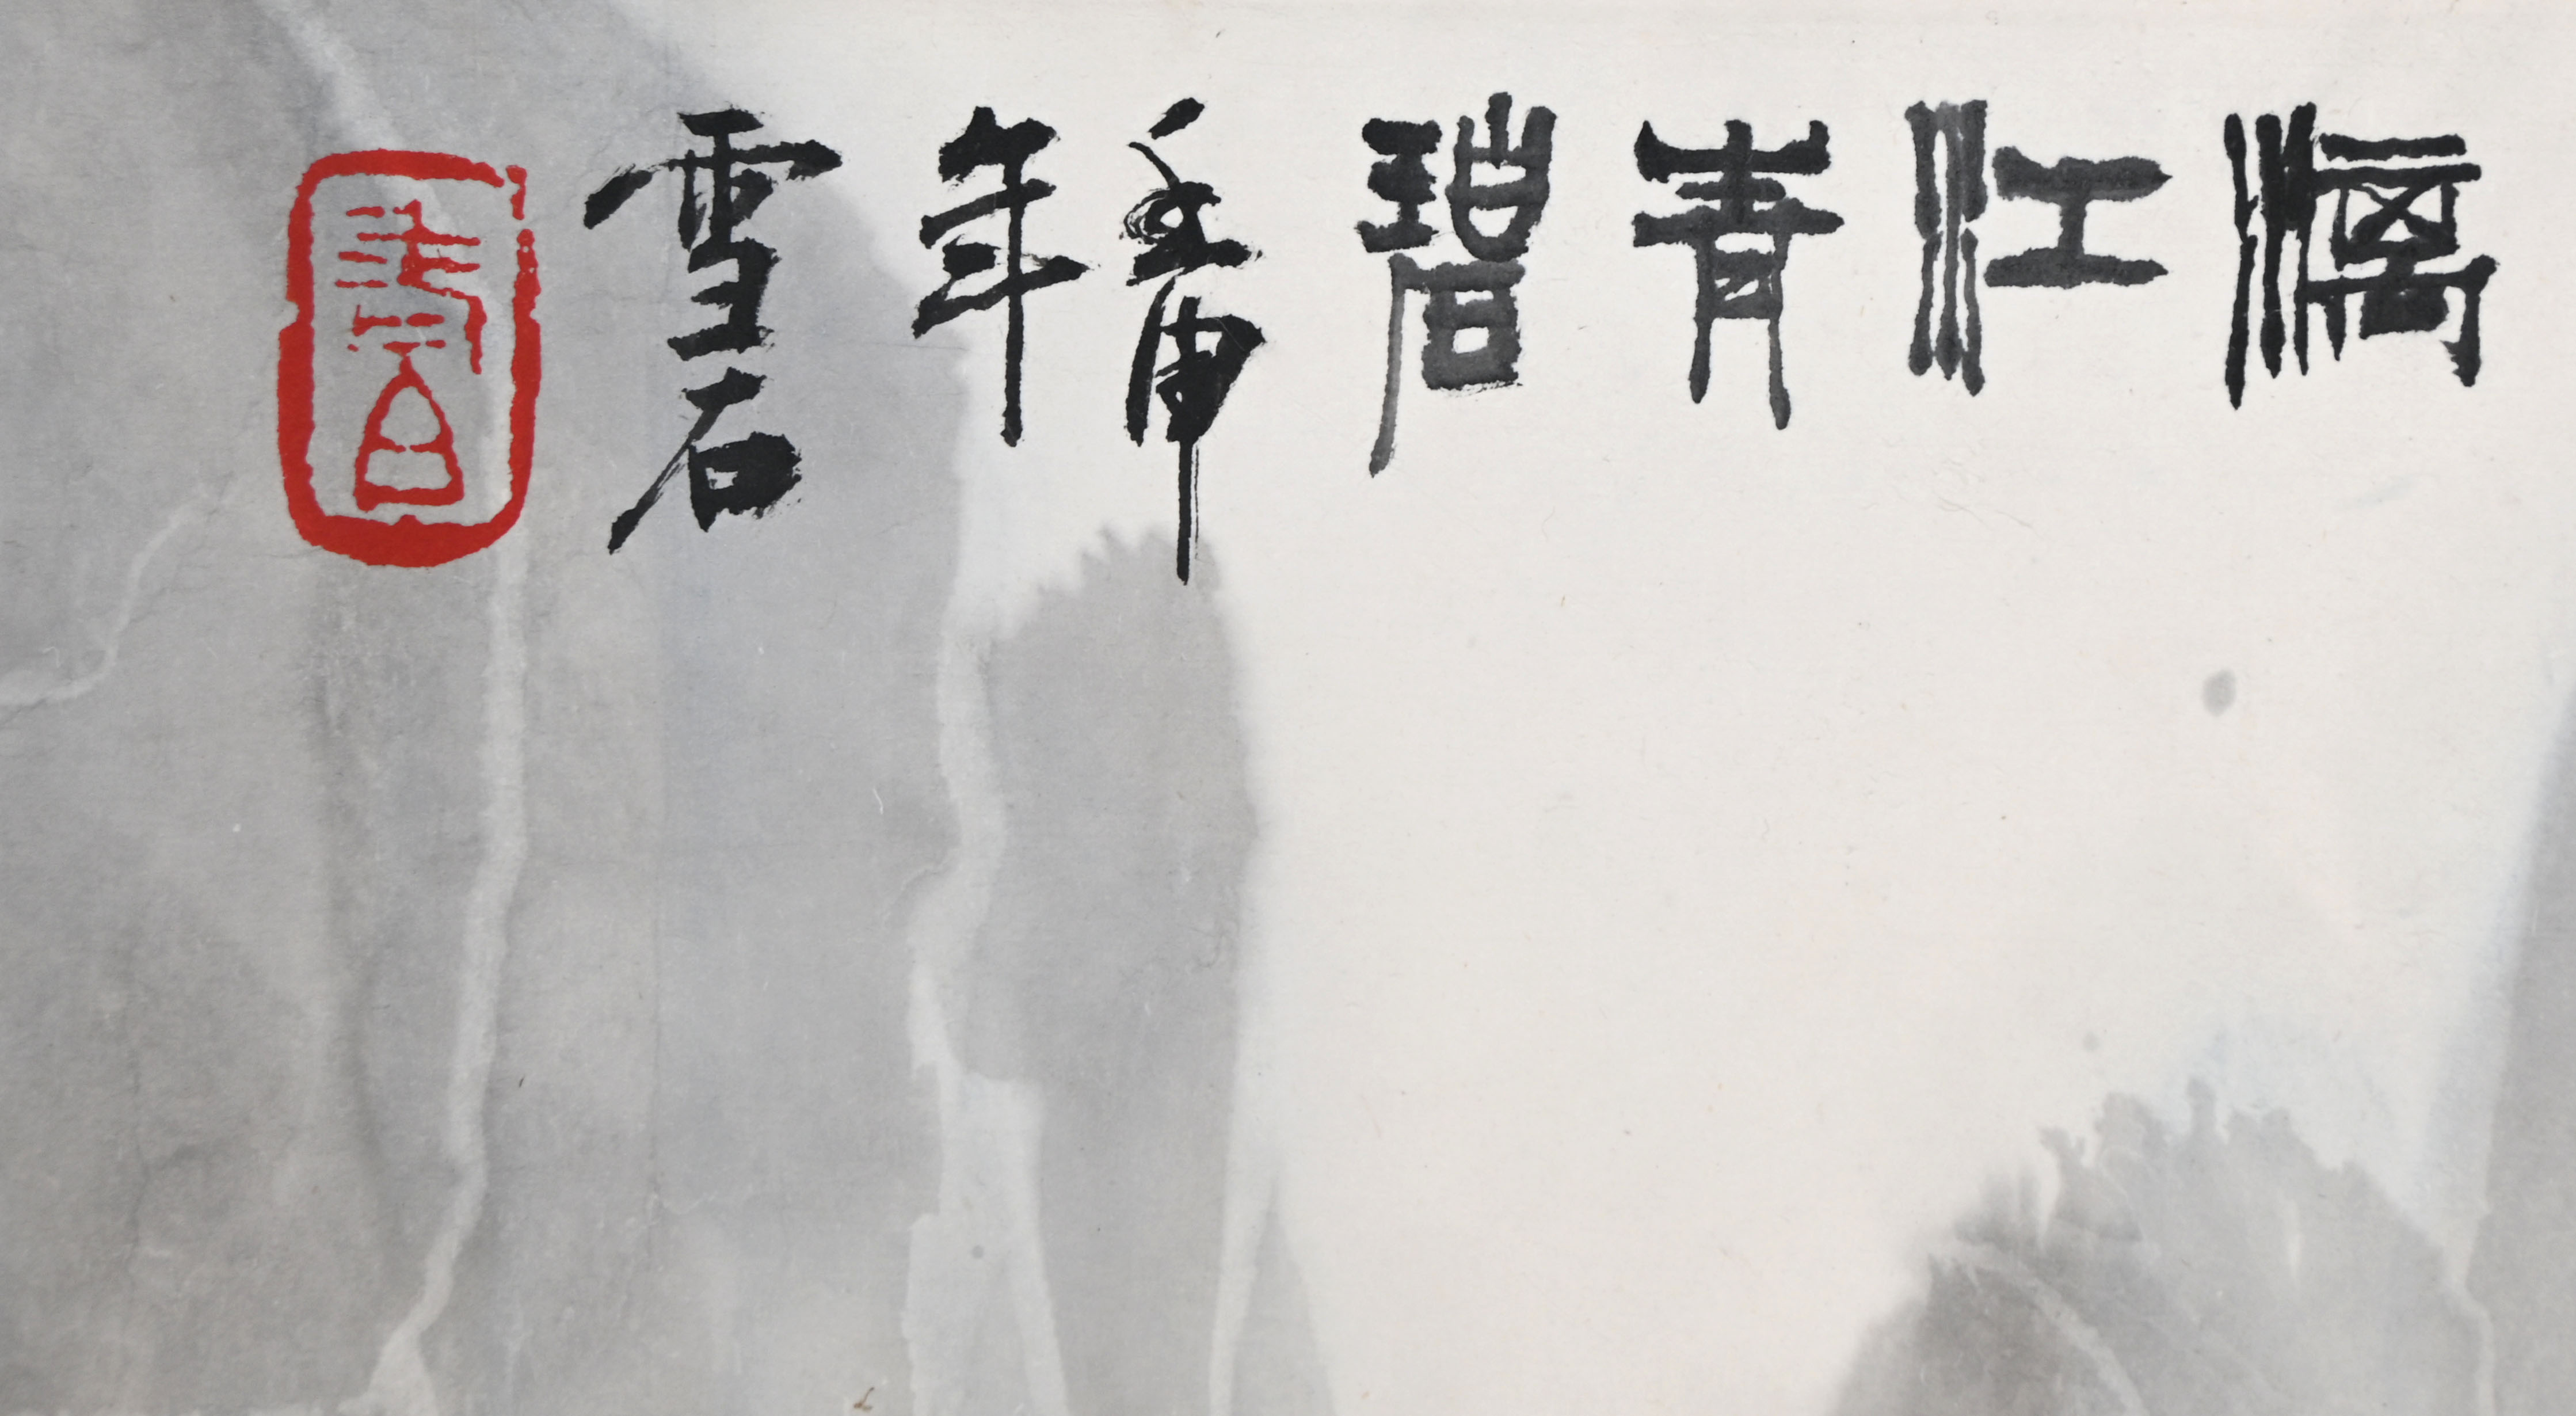 漓江青碧壬申年雪石